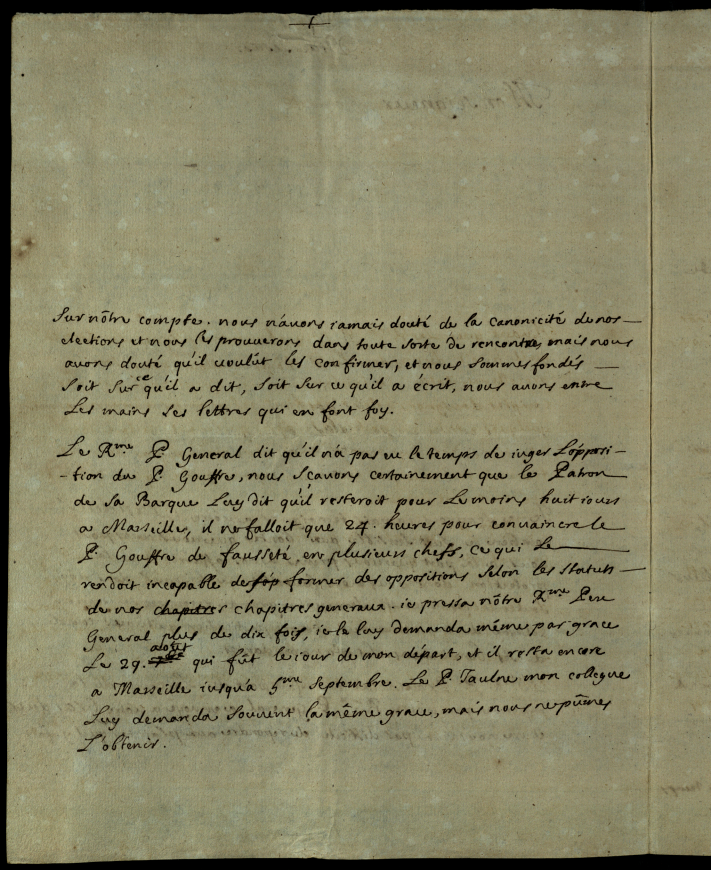 Sur nôtre compte. nous n'avons iamais douté de la canonicité de nos
elections et nous les prouuerons dans toute sorte de rencontre, mais nous
auons douté qu'il voulût les confirmer, et nous sommes fondés
soit sur ce qu'il a dit, soit sur ce qu'il a écrit, nous auons entre
Les mains ses lettres qui en font foy.
Le Rme P. General dit qu'il n'a pas eu le temps de iuger L'opposi-
-tion du P. Gouffre, nous sçauons certainement que le Patron
de sa Barque Luy dit qu'il resteroit pour Le moins huit iours
a Marseille, il ne falloit que 24. heures pour conuaincre le
P. Gouffre de fausseté, en plusieurs chefs, ce qui Le
rendoit incapable de former des oppositions selon les statuts
de nos chapitres chapitres generaux. ie pressa nôtre Rme Pere
General plus de dix fois, ie le luy demanda même par grace
Le 29. aoust qui fût le iour de mon départ, et il resta encore
a Marseille iusqu'a 5me Septembre. Le P. Taulne mon collegue
Luy demanda souuent la même grace, mais nous ne pûmes
L'obtenir.